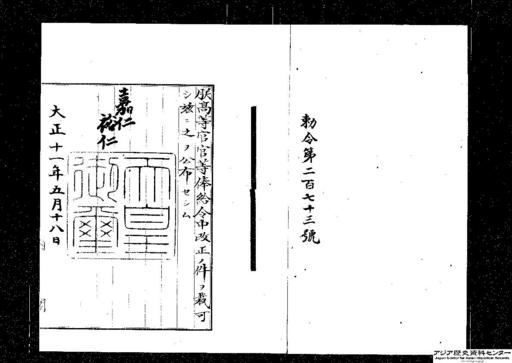 勅令第二百七十三號
朕高等官官等俸給令中改正ノ件ヲ裁可
シ茲ニ之ヲ公布セシム
嘉仁
裕仁
天皇
御璽
大正十一年五月十八日
アジア歴史資料センター
Japan Center for Asian Historical Records